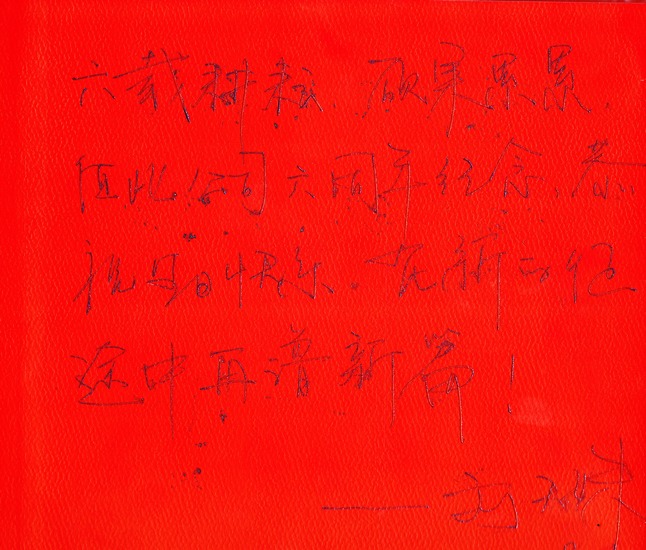 六载耕耘、硕果累累,
值此公司六周年纪念、恭
祝司日快乐。在新的征
途中再谱新篇!
——